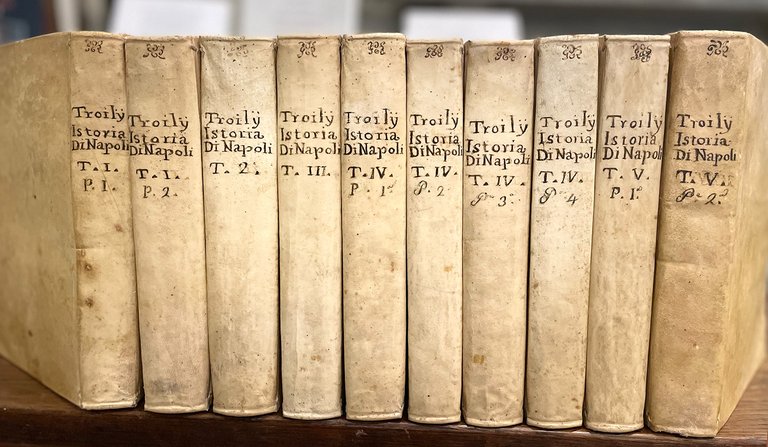 Troilÿ
Istoria
Di Napoli
T. I.
P. I.
Troilÿ
Istoria
Di Napoli
T. I.
P. 2.
Troilÿ
Istoria
Di Napoli
T. 2.
Troilÿ
Istoria
Di Napoli
T. III.
Troilÿ
Istoria
Di Napoli
T. IV.
P. 1ª
Troilÿ
Istoria
Di Napoli
T. IV.
P. 2
Troilÿ
Istoria
Di Napoli
T. IV.
P. 3ª
Troilÿ
Istoria
Di Napoli
T. IV.
P. 4
Troilÿ
Istoria
Di Napoli
T. V.
P. 1ª
Troilÿ
Istoria
Di Napoli
T. V.
P. 2ª